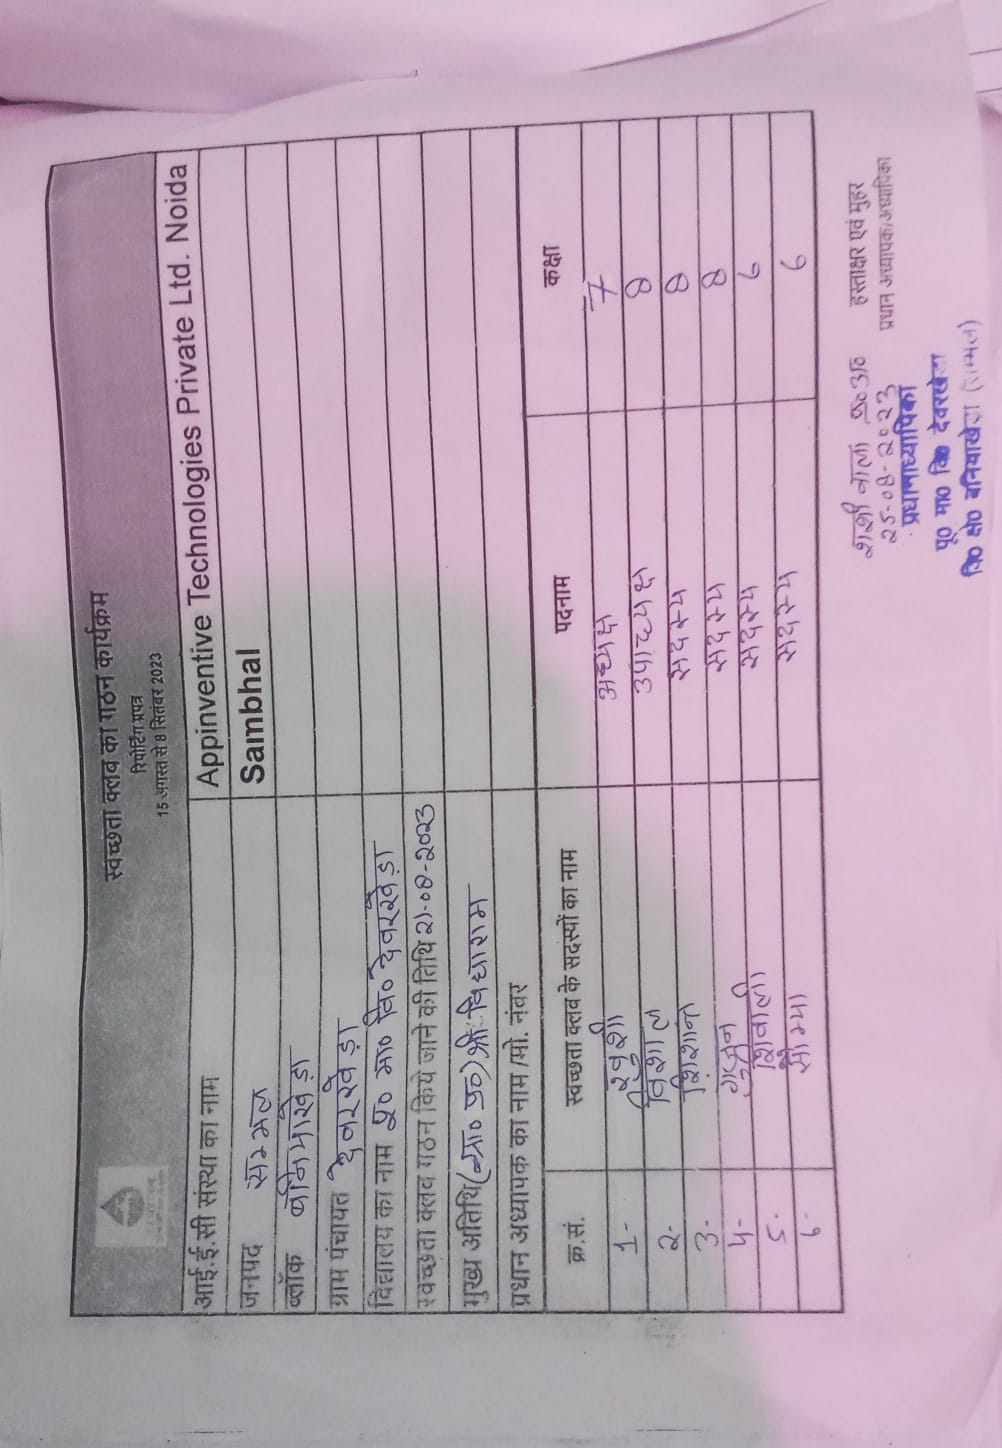 स्वच्छता क्लब का गठन कार्यक्रम
रिपोर्टिंग प्रपत्र
15 अगस्त से 8 सितंबर 2023
आई.ई.सी संस्था का नाम Appinventive Technologies Private Ltd. Noida
जनपद सम्भल Sambhal
ब्लॉक बनियाखेड़ा
ग्राम पंचायत देवरखेड़ा
विद्यालय का नाम पू० मा० वि० देवरखेड़ा
स्वच्छता क्लब गठन किये जाने की तिथि 21-08-2023
मुख्य अतिथि (ग्रा० प्र०) श्री विद्याराम
प्रधान अध्यापक का नाम /मो. नंबर
क्र.सं. स्वच्छता क्लब के सदस्यों का नाम पदनाम कक्षा
1- खुशी अध्यक्ष 7
2- विशाल उपाध्यक्ष 8
3- सदस्य 8
4- गुन्जन सदस्य 8
5- शिवाली सदस्य 6
6- सौम्या सदस्य 6
हस्ताक्षर एवं मुहर
प्रधान अध्यापक/अध्यापिका
शशी बाला प्र०अ०
25-08-2023
प्रधानाध्यापिका
पू० मा० वि० देवरखेड़ा
वि० क्षे० बनियाखेड़ा (सम्भल)